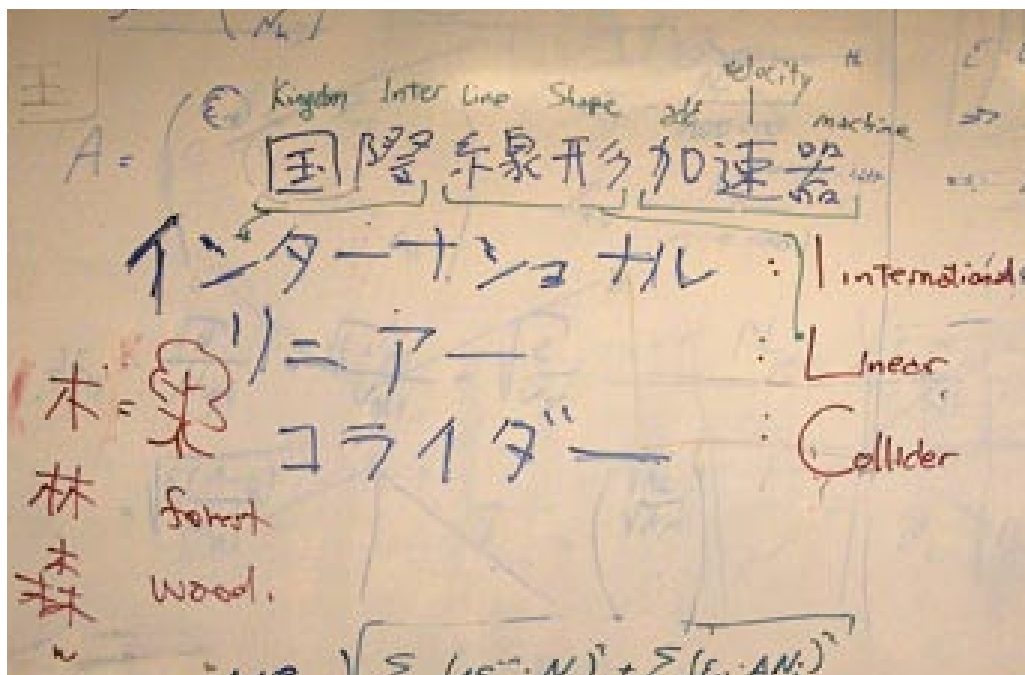 Kingdom Inter Line Shape add velocity machine
A =
国際線形加速器
インターナショナル : International
リニアー : Linear
コライダー : Collider
木 =
林 forest
森 wood.